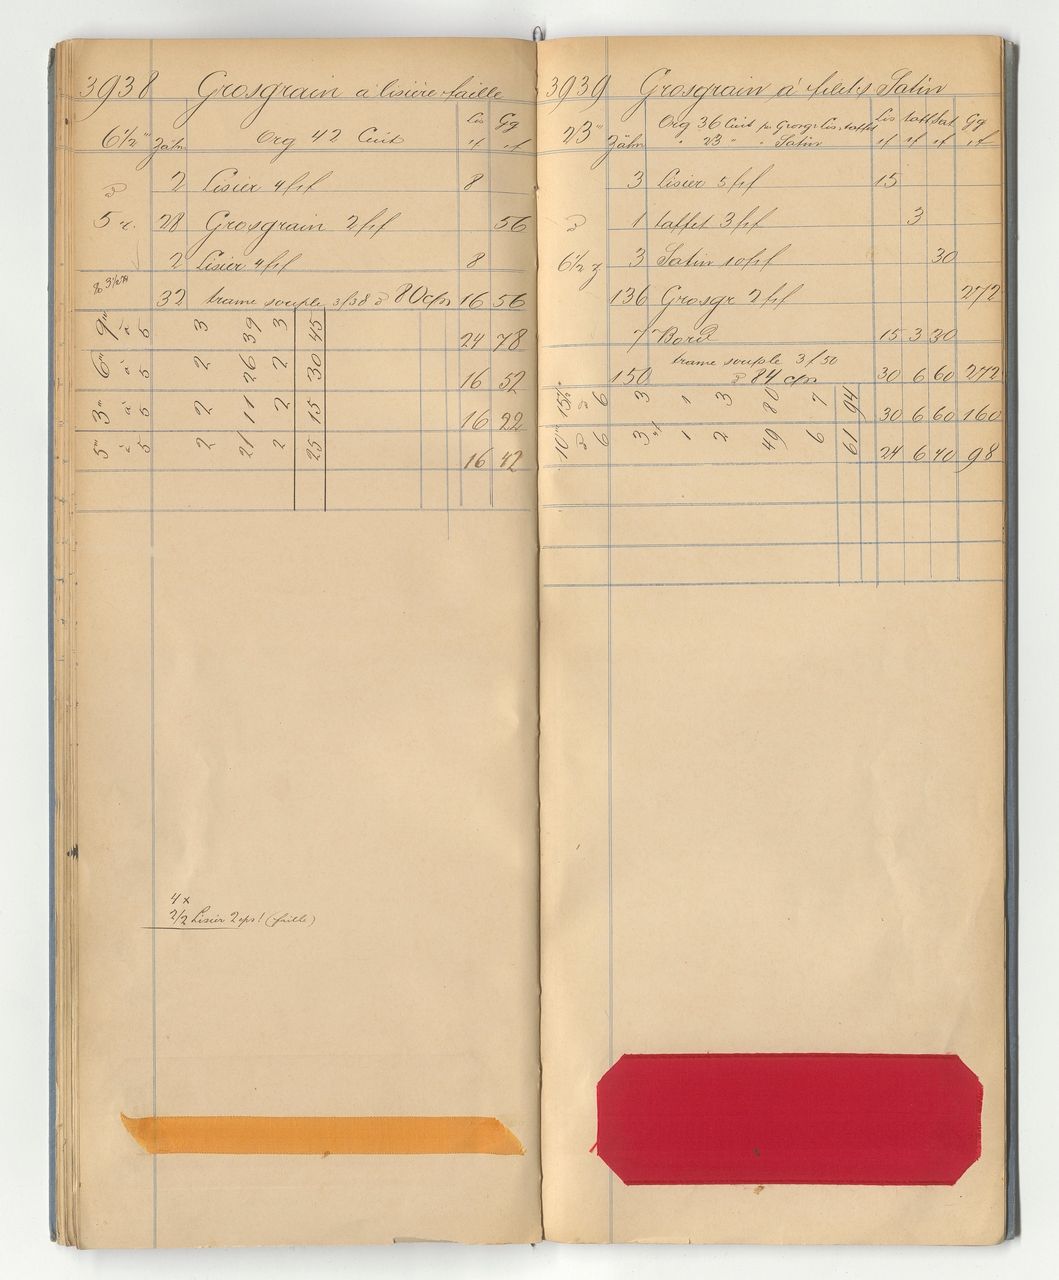 3938 Grosgrain à lisière faille
6½''' Zähn Org 42 Cuit Lis Gg
2 Lisier 4 f/f 8
5 r. 28 Grosgrain 2 f/f 56
2 Lisier 4 f/f 8
32 trame souple 3/38 à 80 cps 16 56
9''' à 5 3 39 3 45 24 78
6''' à 5 2 26 2 30 16 52
3''' à 5 2 11 2 15 16 22
5''' à 5 2 21 2 25 16 42
4 x
2/2 Lisier 2 cps! (faille)
3939 Grosgrain à filets Satin
23''' Zähn Org 36 Cuit pr Grosgr Lis. taffet Lis taff Sat Gg
" 23 " " Satin
3 Lisier 5 f/f 15
1 taffet 3 f/f 3
6½ z 3 Satin 10 f/f 30
136 Grosgr 2 f/f 272
7 Bord 15 3 30
trame souple 3/50
150 à 84 cps 30 6 60 272
15''' à 6 3 1 3 80 7 94 30 6 60 160
10''' à 6 3 1 2 49 6 61 24 6 40 98